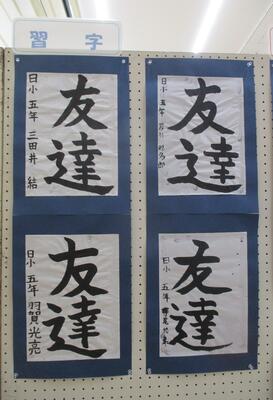 習字
友達
日小 五年 三田井 結
友達
日小 五年
友達
日小 五年 羽賀光亮
友達
日小 五年